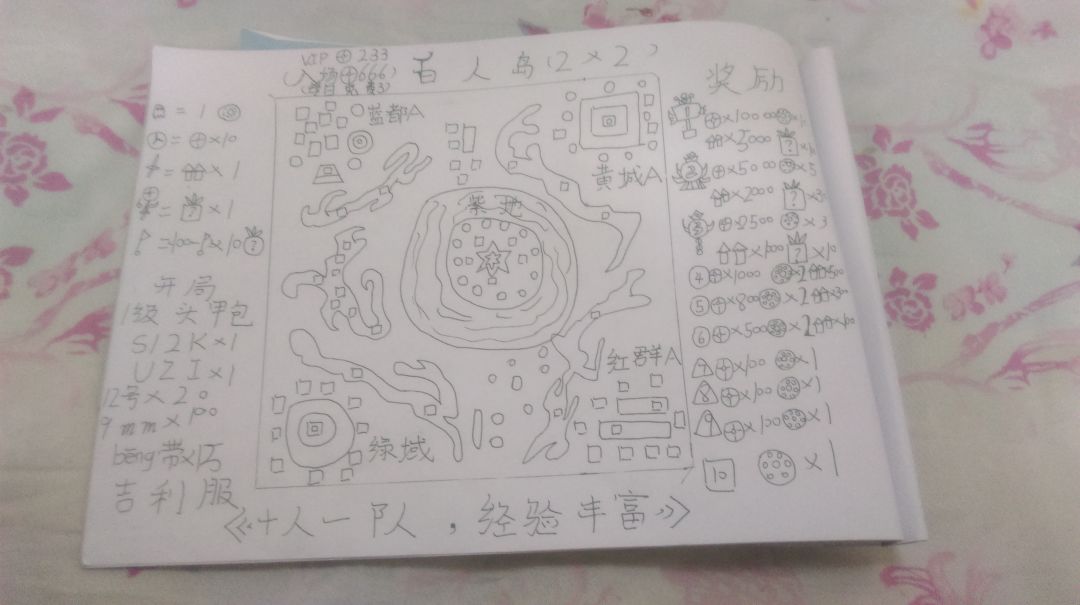 VIP⊕233
(入场⊕666)
百人岛(2×2)
奖励
= 1
= ⊕×10
= ×1
= ?×1
=100 ×10 ?
开局
1级头甲包
S12K×1
UZI×1
12号×20
9mm×100
bēng带×15
吉利服
蓝都A
黄城A
紫地
红群A
绿域
⊕×10000 ×10
×5000 ?
2 ⊕×5000 ×5
×2000 ?
3 ⊕×2500 ×3
×1000 ? ×10
④ ⊕×1000 ×2 ×500
⑤ ⊕×800 ×2
⑥ ⊕×500 ×2 ×100
7 ⊕×100 ×1
8 ⊕×100 ×1
9 ⊕×100 ×1
10 ×1
《十人一队，经验丰富》